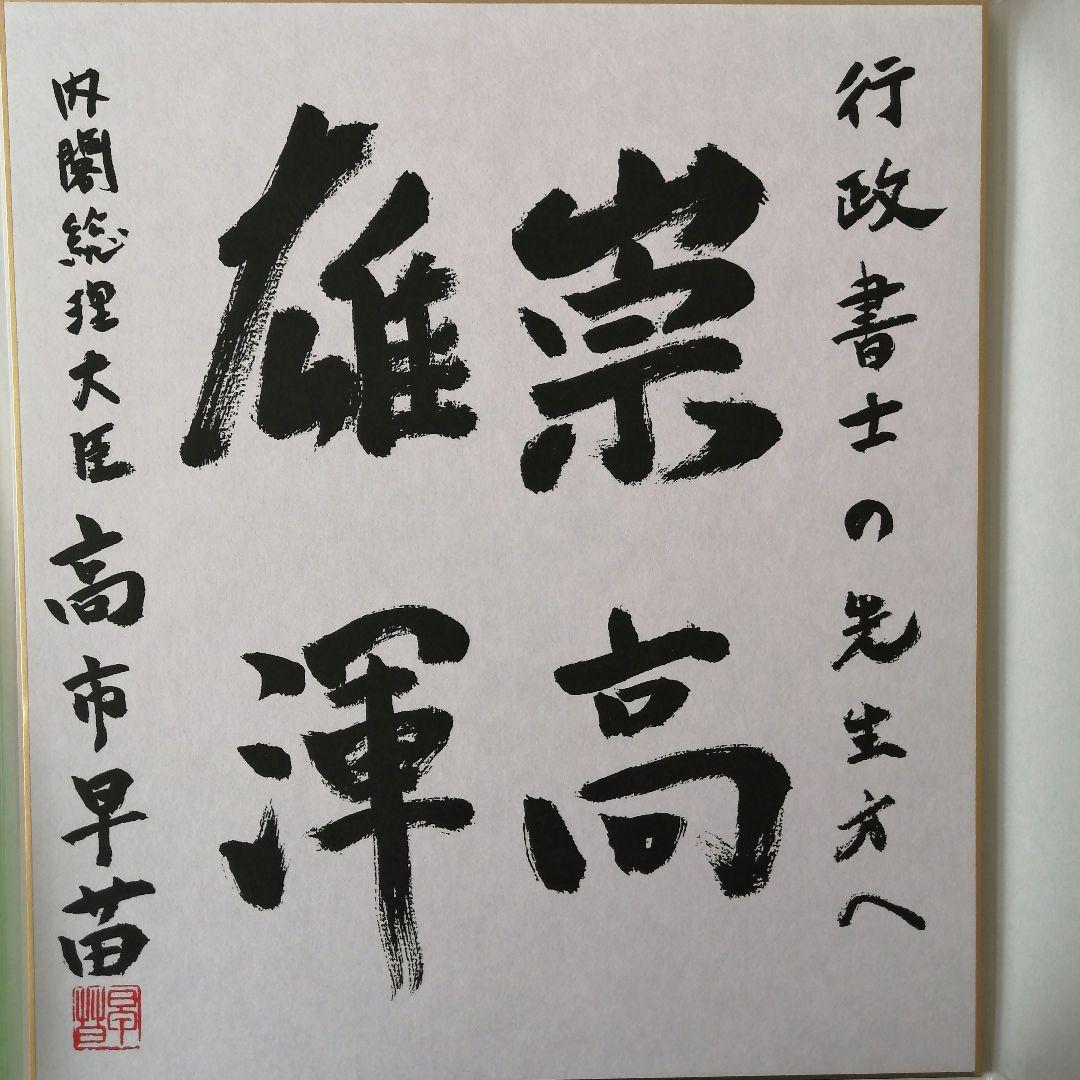 行政書士の先生方へ
崇高
雄渾
内閣総理大臣 高市早苗
早苗